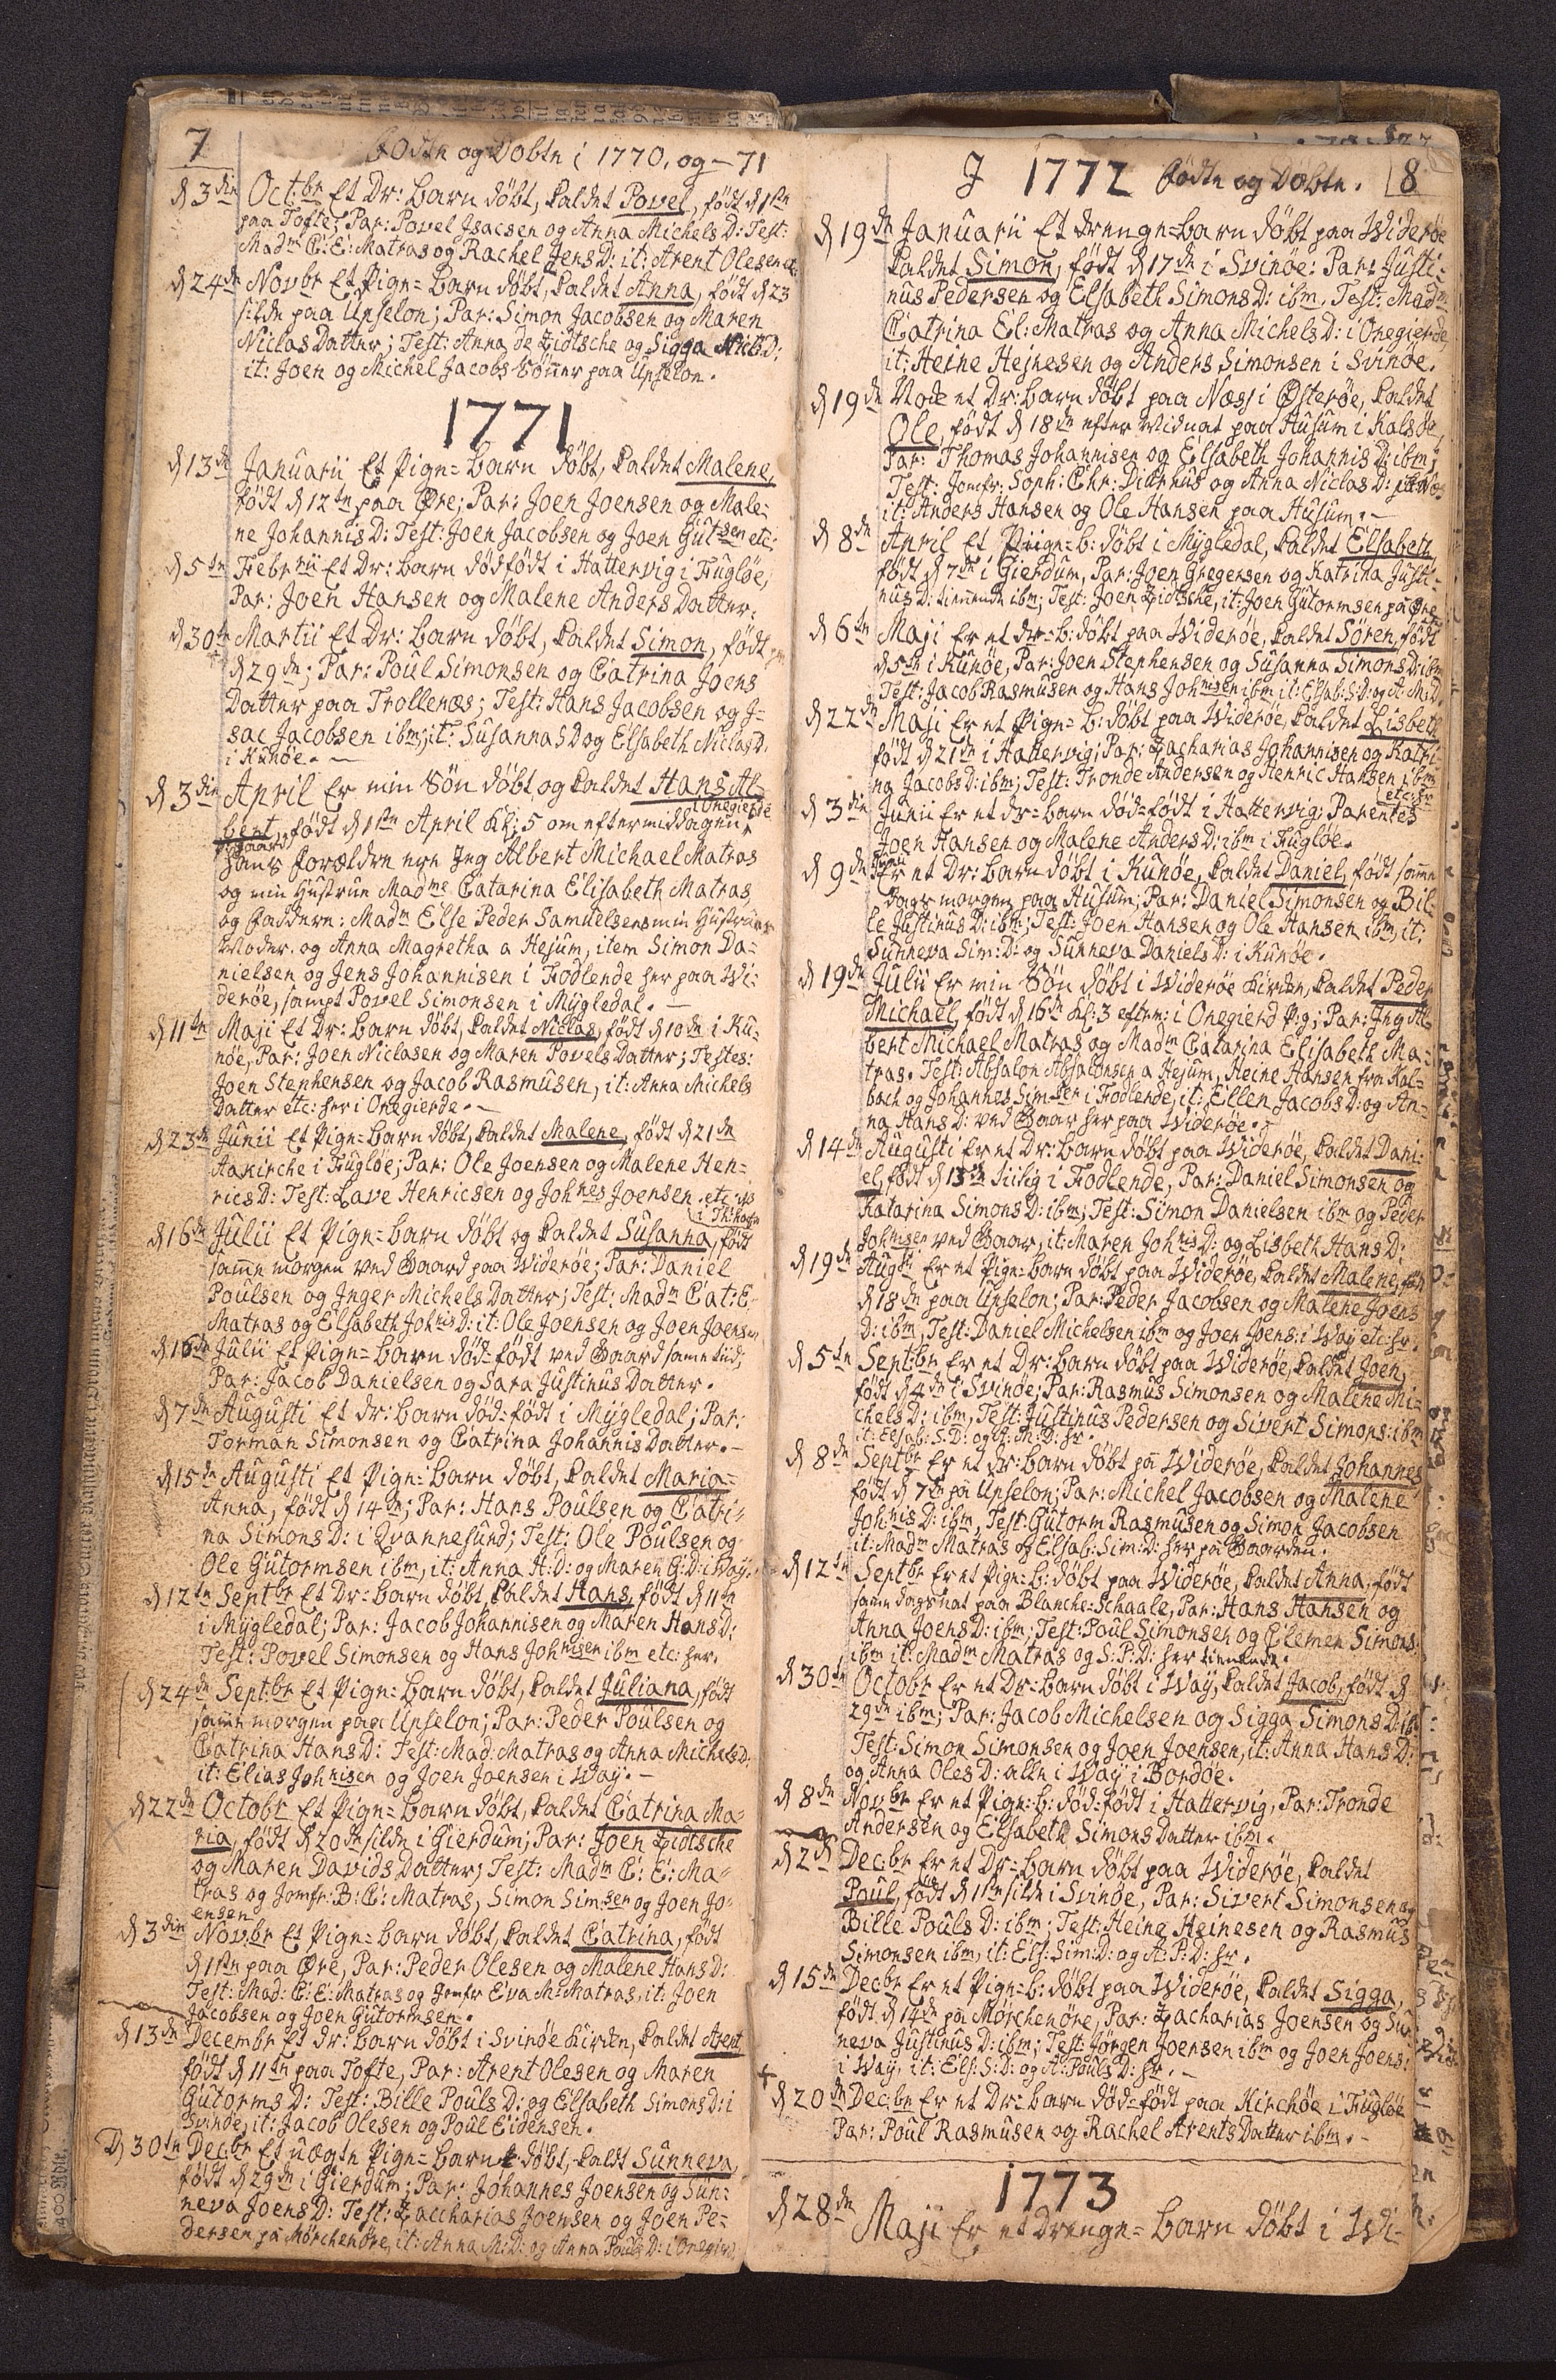 7
Födte og Döbte i 1770, og - 71
d 3die Octbr Et Dr: Barn döbt, kaldet Povel, födt d 1ste
paa Tofte; Par: Povel Isacsen og Anna Michels D: Test:
Madme C: E: Matras og Rachel Jens D: it: Arent Olesen etc
d 24de Novbr Et Pige=Barn döbt, kaldet Anna, födt d 23
silde paa Upselon; Par: Simon Jacobsen og Maren
Niclas Datter; Test: Anna de Zidtsche og Sigga Nicls D:
it: Joen og Michel Jacobs Sönner paa Upselon.
1771
d 13de Januarii Et Pige=Barn döbt, kaldet Malene,
födt d 12te paa Øre; Par: Joen Joensen og Male=
ne Johannis D: Test: Joen Jacobsen og Joen Gutsen etc:
d 5te Febrii Et Dr: Barn dödfödt i Hattervig i Fuglöe,
Par: Joen Hansen og Malene Anders Datter.
d 30te Martii Et Dr: Barn döbt, kaldet Simon, födt
d 29de; Par: Poul Simonsen og Catrina Joens
Datter paa Trollenæs; Test: Hans Jacobsen og I=
sac Jacobsen ibm; it: Susanna S D og Elsabeth Niclas D.
i Kunöe. -
d 3die April Er min Sön döbt og kaldet Hans Al=
bert, födt d 1ste April Kl: 5 om eftermiddagen, Onegierde
hans Forældre ere Jeg Albert Michael Matras
og min Hustrue Madme Catarina Elisabeth Matras,
og Faddere: Madm Else Peder Samuelsens min Hustrues
Moder. og Anna Magretha a Hejum, item Simon Da=
nielsen og Jens Johannisen i Fodlende her paa Wi=
deröe, sampt Povel Simonsen i Mygledal. -
d 11te Maji Et Dr: Barn döbt, kaldet Niclas, födt d 10de i Ku=
nöe, Par: Joen Niclasen og Maren Povels Datter; Testes:
Joen Stephensen og Jacob Rasmusen, it: Anna Michels
Datter etc: her i Onegierde. -
d 23de Junii Et Pige=Barn döbt, kaldet Malene, födt d 21de
Aakirche i Fuglöe; Par: Ole Joensen og Malene Hen=
rics D: Test: Lave Henricsen og Johnes Joensen. etc:
d 16de Julii Et Pige=Barn döbt og kaldet Susanna, födt
samme morgen ved Gaard paa Wideröe; Par: Daniel
Poulsen og Inger Michels Datter; Test: Madm Cat: E:
Matras og Elsabeth Johnis D: it: Ole Joensen og Joen Joensen
d 16de Julii Et Pige=Barn död=födt ved Gaard samme tiid;
Par: Jacob Danielsen og Sara Justinus Datter.
d 7de Augusti Et dr: Barn död=födt i Mygledal; Par:
Torman Simonsen og Catrina Johannis Datter. -
d 15de Augusti Et Pige=Barn döbt, kaldet Maria=
Anna, födt d 14de; Par: Hans Poulsen og Catri=
na Simons D: i Qvannesund; Test: Ole Poulsen og
Ole Gutormsen ibm, it: Anna H: D: og Maren G: D: i Waÿ.
d 12te Septbr Et Dr: Barn döbt, kaldet Hans, födt d 11te
i Mygledal; Par: Jacob Johannisen og Maren Hans D:
Test: Povel Simonsen og Hans Johnisen ibm etc: her.
d 24de Septbr Et Pige=Barn döbt, kaldet Juliana, födt
samme morgen paa Upselon; Par: Peder Poulsen og
Catrina Hans D: Test: Mad: Matras og Anna Michels D:
it: Elias Johnisen og Joen Joensen i Waÿ. -
d 22de Octobr Et Pige=Barn döbt, kaldet Catrina Ma=
ria, födt d 20de silde i Gierdum; Par: Joen Zidtsche
og Maren Davids Datter; Test: Madm C: E: Ma=
tras og Jomfr: B: C: Matras, Simon Simsen og Joen Jo=
ensen
d 3die Novbr Et Pige=Barn döbt, kaldet Catrina, födt
d 1ste paa Øre, Par: Peder Olesen og Malene Hans D:
Test: Mad: C: E: Matras og Jomfr Eva M: Matras, it: Joen
Jacobsen og Joen Gutormsen.
d 13de Decembr Et dr: Barn döbt i Svinöe Kirke, kaldet Arent
födt d 11te paa Tofte, Par: Arent Olesen og Maren
Gutorms D: Test: Bille Pouls D: og Elsabeth Simons D: i
Svinöe, it: Jacob Olesen og Poul Eidensen.
D 30te Decbr Et uægte Pige=Barn döbt, kaldt Sunneva,
födt d 29de i Gierdum; Par: Johannes Joensen og Sun=
neva Joens D: Test: Zaccharias Joensen og Joen Pe=
dersen på Mörchenöre, it: Anna M: D: og Anna Pouls D: i Onegierd.
I 1772 Födte og Döbte. 8
d 19de Januarii Et drenge=Barn döbt paa Wideröe
kaldet Simon, födt d 17de i Svinöe: Par: Justi=
nus Pedersen og Elsabeth Simons D: ibm. Test: Madm
Catrina El: Matras og Anna Michels D: i Onegierde
it: Heine Hejnesen og Anders Simonsen i Svinöe.
d 19de Node et Dr: Barn döbt paa Næss i Österöe, kaldet
Ole, födt d 18de efter Midnat paa Husum i Kalsöe,
Par: Thomas Johannisen og Elsabeth Johannis D: ibm;
Test: Jomfr: Soph: Chr: Ditenus og Anna Niclas D:
it: Anders Hansen og Ole Hansen paa Husum. -
d 8de April Et Pige=b: döbt i Mygledal, kaldet Elsabeth,
födt d 7de i Gierdum, Par: Joen Gregersen og Katrina Justi=
nus D: tienende ibm; Test: Joen Zidtsche, it: Joen Gutormsen på Øre
d 6te Maji Er et dr=b: döbt paa Wideröe, kaldet Sören, födt
d 5te i Kunöe, Par: Joen Stephensen og Susanna Simons D: ibm
Test: Jacob Rasmusen og Hans Johnisen ibm it: Elsab: S: D: og A: M: D.
d 22de Maji Er et Pige=b: döbt paa Wideröe, kaldet Lisbeth
födt d 21de i Hattervig; Par: Zacharias Johannisen og Katri=
na Jacobs D: ibm; Test: Tronde Andersen og Henric Hansen ibm
etc: hr
d 3die Junii Er et dr=Barn död=födt i Hattervig; Parentes
Joen Hansen og Malene Anders D: ibm i Fuglöe.
d 9de Junii Er et Dr: Barn döbt i Kunöe, kaldet Daniel, födt samme
dags morgen paa Husum; Par: Daniel Simonsen og Bil=
le Justinus D: ibm; Test: Joen Hansen og Ole Hansen ibm, it:
Sunneva Sim: D: og Sunneva Daniels D: i Kunöe.
d 19de Julii Er min Sön döbt i Wideröe Kirke, kaldet Peder
Michael, födt d 16de Kl: 3 efterm: i Onegierd P.g; Par: Jeg Al=
bert Michael Matras og Madm Catarina Elisabeth Ma=
tras. Test: Absalon Absalonsen a Hejum, Heine Hansen fra Kal=
bach og Johannes Simsen i Fodlende, it: Ellen Jacobs D: og An=
na Hans D: ved Gaar her paa Wideröe.
d 14de Augusti Er et Dr: Barn döbt paa Wideröe, kaldet Dani=
el, födt d 13de tiilig i Fodlende, Par: Daniel Simonsen og
Katarina Simons D: ibm; Test: Simon Danielsen ibm og Peder
Johnisen ved Gaar, it: Maren Johnis D: og Lisbeth Hans D:
d 19de Augti Er et Pige=Barn döbt paa Wideröe, kaldet Malene, födt
d 18de paa Upselon; Par: Peder Jacobsen og Malene Joens
D: ibm, Test: Daniel Michelsen ibm og Joen Joens: i Waÿ etc: hr.
d 5te Septbr Er et Dr: Barn döbt paa Wideröe, kaldet Joen,
födt d 4de i Svinöe; Par: Rasmus Simonsen og Malene Mi=
chels D: ibm, Test: Justinus Pedersen og Sivert Simons: ibm
it: Elsab: S: D: og A: M: D: hr.
d 8de Septbr Er et dr: Barn döbt på Wideröe, kaldet Johannes
födt d 7de på Upselon; Par: Michel Jacobsen og Malene
Johnis D: ibm, Test: Gutorm Rasmusen og Simon Jacobsen
it: Madm Matras og Elsab: Sim: D: her på Gaarden.
d 12te Septbr Er et Pige=b: döbt paa Wideröe, kaldet Anna, födt
samme dags nat paa Blanche=Schaale, Par: Hans Hansen og
Anna Joens D: ibm; Test: Poul Simonsen og Clemen Simons:
ibm it: Madm Matras og S: P: D: her tienende.
d 30te Octobr Er et Dr=Barn döbt i Waÿ, kaldet Jacob, födt d
29de ibm; Par: Jacob Michelsen og Sigga Simons D: ibm
Test: Simon Simonsen og Joen Joensen, it: Anna Hans D:
og Anna Oles D: alle i Waÿ i Bordöe.
d 8de Novbr Er et Pige=b: död=födt i Hattervig, Par: Tronde
Andersen og Elsabeth Simons Datter ibm.
d 2de Decbr Er et Dr=Barn döbt paa Wideröe, kaldet
Poul, födt d 1ste silde i Svinöe, Par: Sivert Simonsen og
Bille Pouls D: ibm; Test: Heine Heinesen og Rasmus
Simonsen ibm, it: Els: Sim: D: og A: P: D: hr.
d 15de Decbr Er et Pige=b: döbt paa Wideröe, kaldet Sigga,
födt d 14de på Mörchenöre, Par: Zacharias Joensen og Su=
neva Justinus D: ibm; Test: Jörgen Joensen ibm og Joen Joens:
i Waÿ, it: Els: S: D: og A: Pouls D: hr. -
d 20de Decbr Er et Dr=Barn död=födt paa Kirchöe i Fuglöe
Par: Poul Rasmusen og Rachel Arents Datter ibm. -
1773
d 28de Maji Er et drenge=Barn döbt i Wi-